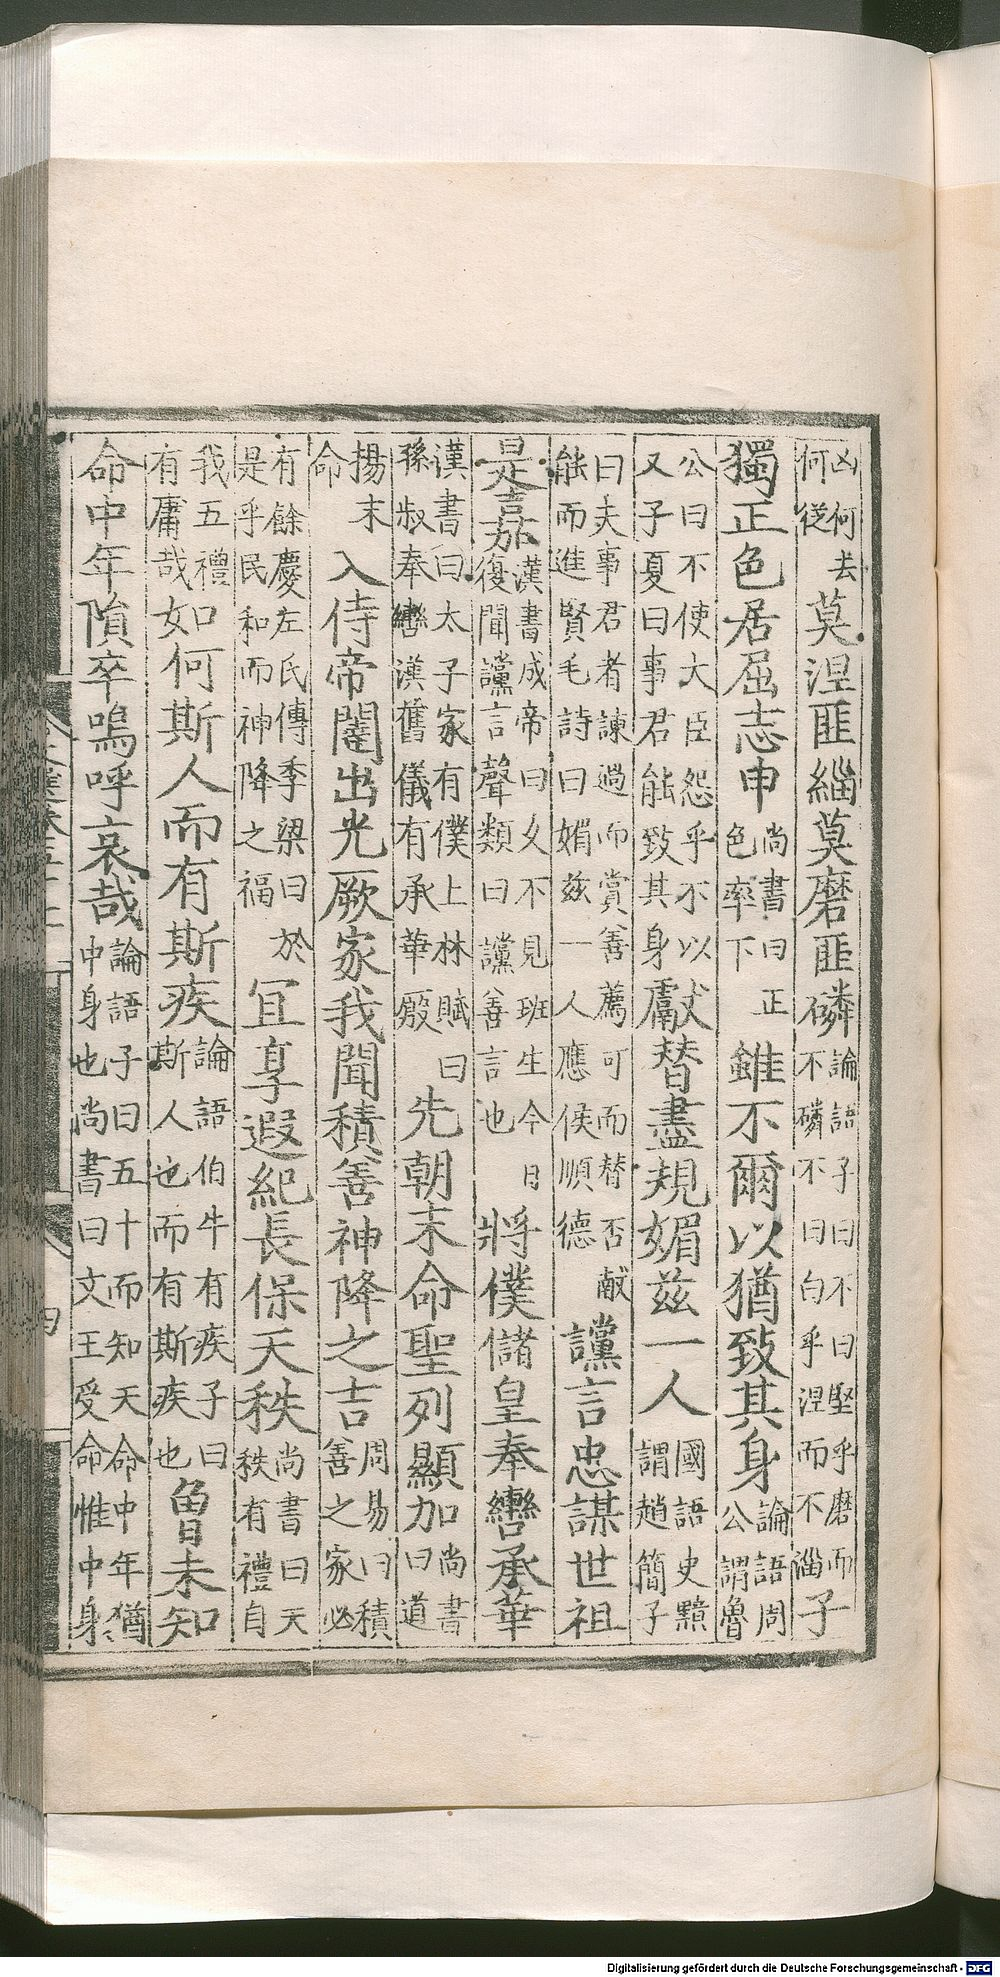 凶何去何從莫涅匪緇莫磨匪磷論語子曰不曰堅乎磨而不磷不曰白乎涅而不淄子
獨正色居屈志申尚書曰正色率下雖不爾以猶致其身論語周公謂魯
公曰不使大臣怨乎不以又子夏曰事君能致其身獻替盡規媚兹一人國語史黯謂趙簡子
曰夫事君者諫過而賞善薦可而替否獻能而進賢毛詩曰媚兹一人應侯順德讜言忠謀世祖
是嘉漢書成帝曰久不見班生今日復聞讜言聲類曰讜善言也將僕儲皇奉轡承華
漢書曰太子家有僕上林賦曰孫叔奉轡漢舊儀有承華廄先朝末命聖列顯加尚書曰道
揚末命入侍帝闈出光厥家我聞積善神降之吉周易曰積善之家必
有餘慶左氏傳季梁曰於是乎民和而神降之福冝享遐紀長保天秩尚書曰天秩有禮自
我五禮有庸哉如何斯人而有斯疾論語伯牛有疾子曰斯人也而有斯疾也曾未知
命中年隕卒嗚呼哀哉論語子曰五十而知天命中年猶中身也尚書曰文王受命惟中身
四
Digitalisierung gefördert durch die Deutsche Forschungsgemeinschaft - DFG